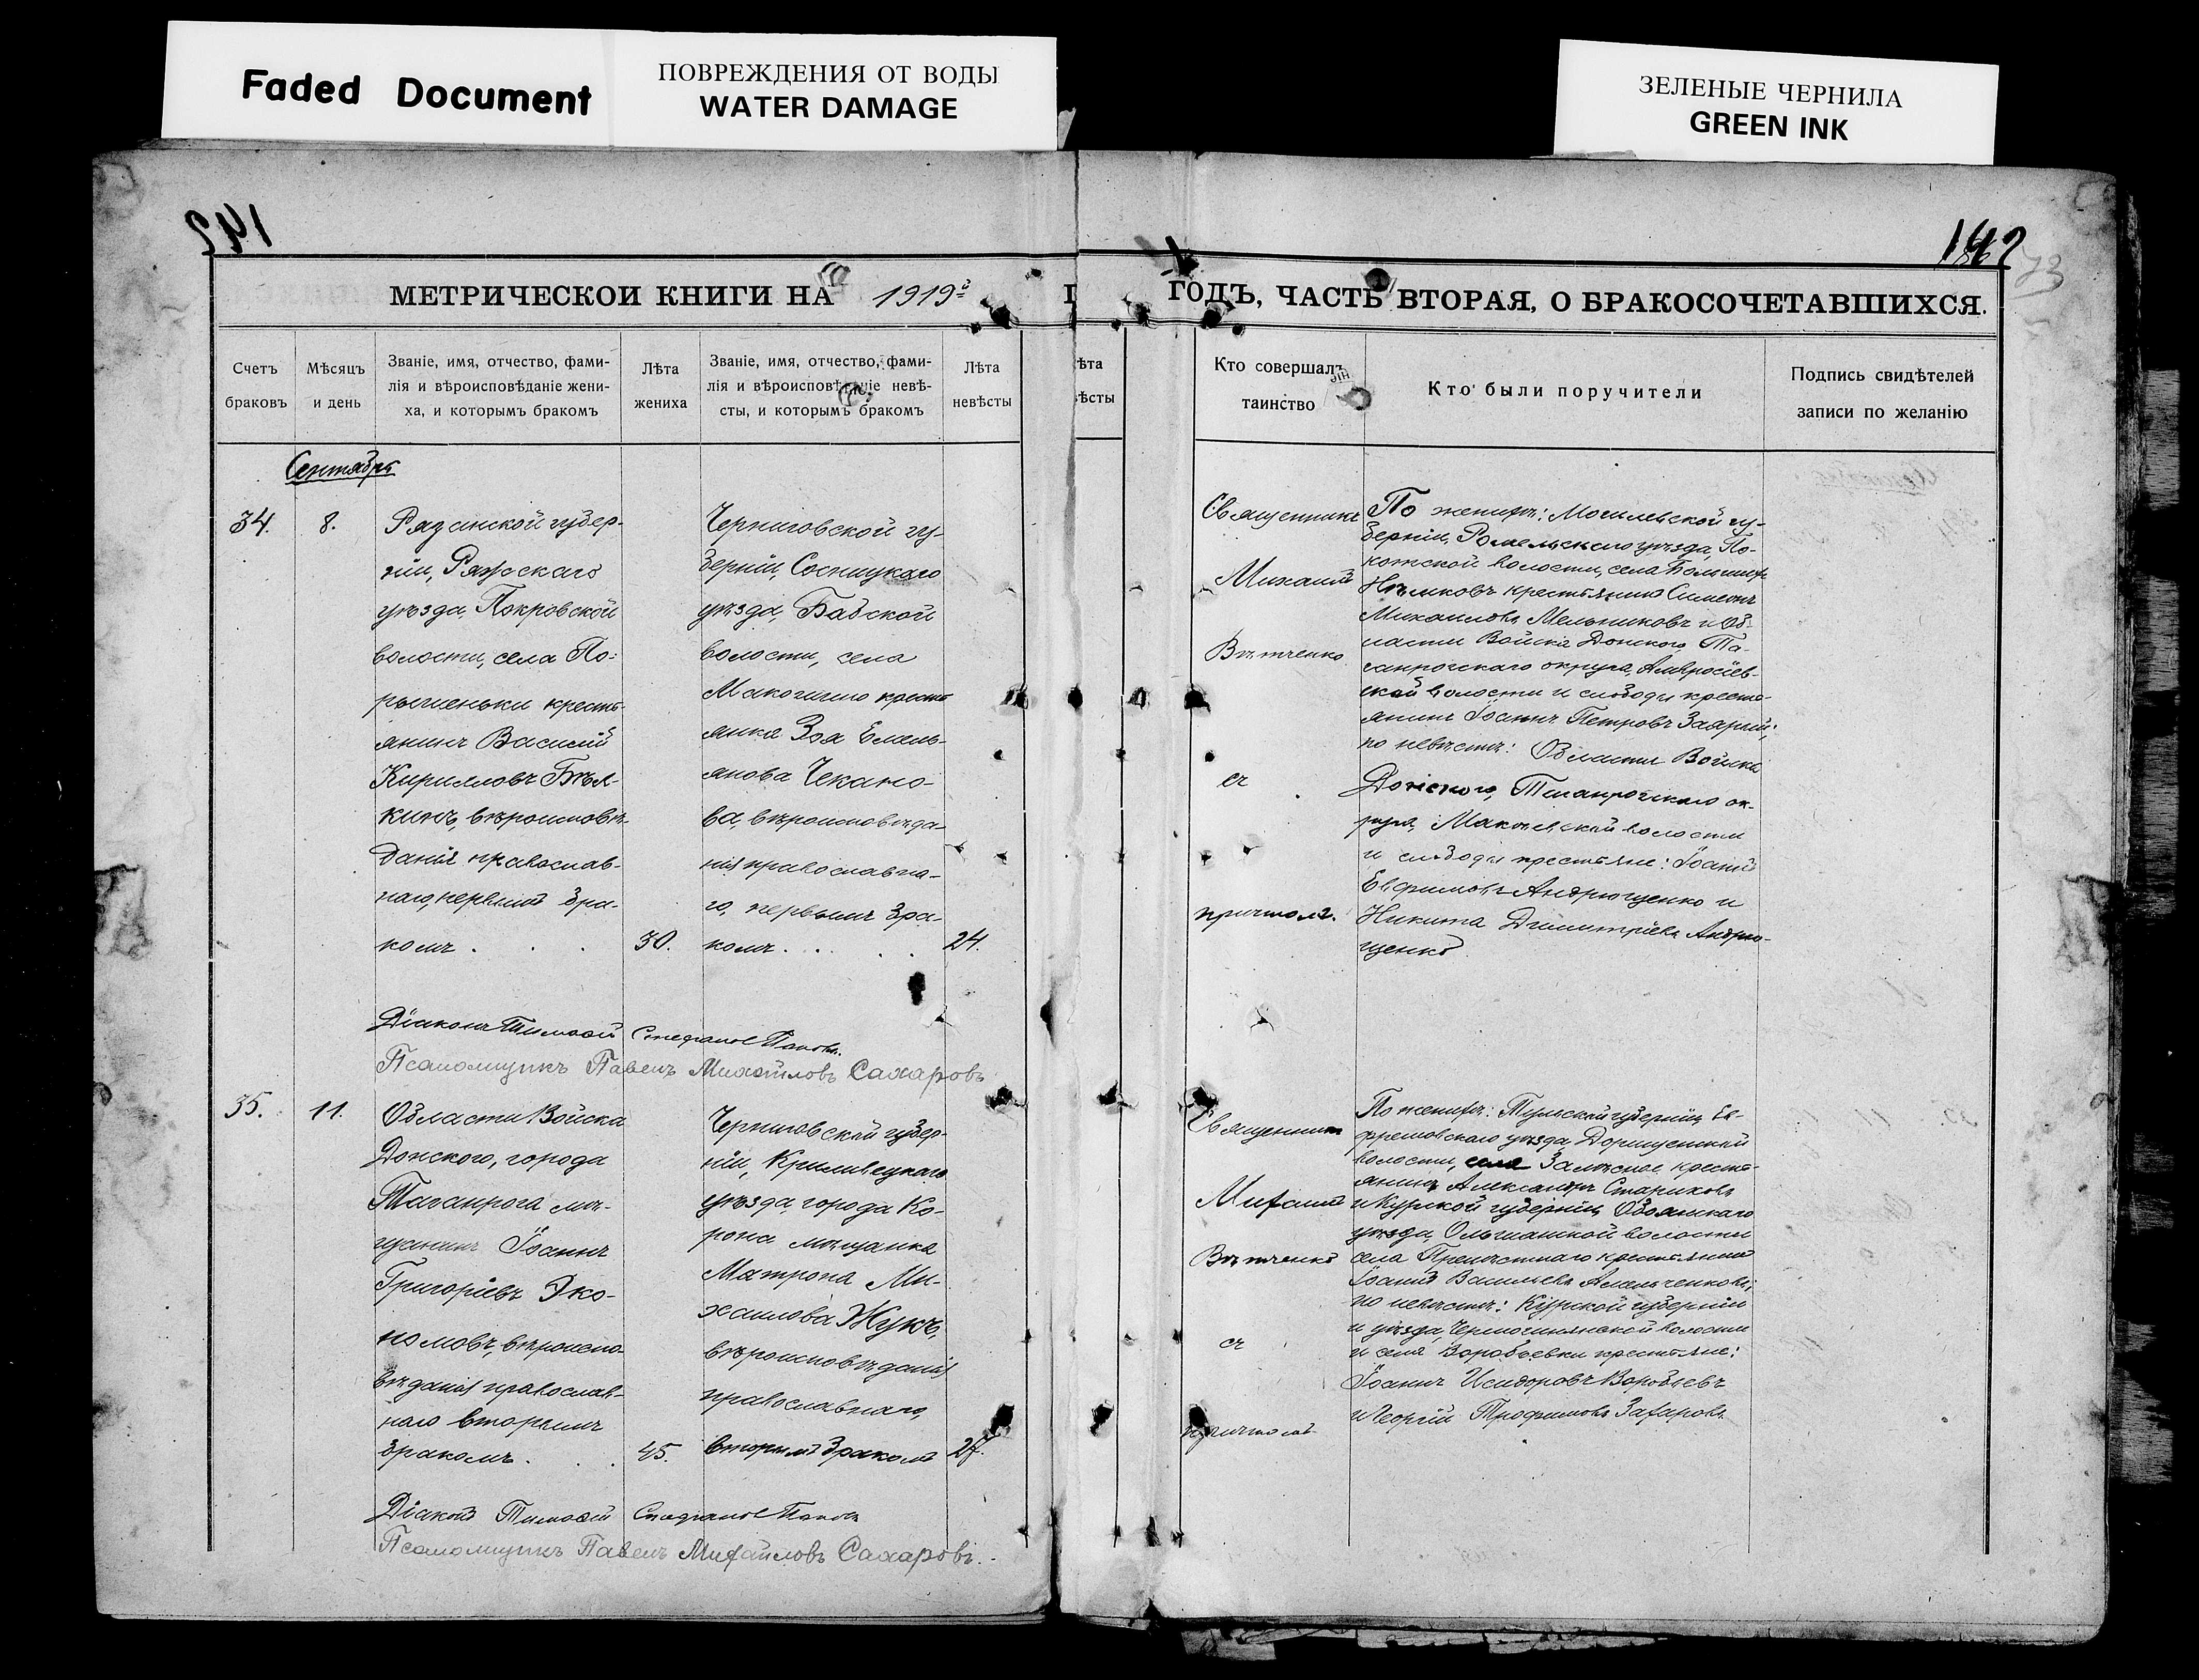 Faded Document
ПОВРЕЖДЕНИЯ ОТ ВОДЫ
WATER DAMAGE
ЗЕЛЕНЫЕ ЧЕРНИЛА
GREEN INK
142
142
73
МЕТРИЧЕСКОЙ КНИГИ НА 1919й
ГОДЪ, ЧАСТЬ ВТОРАЯ, О БРАКОСОЧЕТАВШИХСЯ.
Счетъ
браковъ
Мѣсяцъ
и день
Званіе, имя, отчество, фами-
лія и вѣроисповѣданіе жени-
ха, и которымъ бракомъ
Лѣта
жениха
Званіе, имя, отчество, фами-
лія и вѣроисповѣданіе невѣ-
сты, и которымъ бракомъ
Лѣта
невѣсты
ѣта
ѣсты
Кто совершалъ
таинство
Кто были поручители
Подпись свидѣтелей
записи по желанію
Сентября
34.
8.
Рязанской губер-
ніи, Ряжскаго
уѣзда, Покровской
волости, села По-
крестъ-
янинъ Василій
Кирилловъ Бѣл-
кинъ, вѣроисповѣ-
данія православ-
наго, первымъ бра-
комъ . . .
30.
Черниговской гу-
берніи, Сосницкаго
уѣзда, Бабской
волости, села
Макошино кресть
янка Зоя Емель-
янова Чекано-
ва, вѣроисповѣда-
нія православна-
го, первымъ бра-
комъ . . . .
24.
Священникъ
Михаилъ
Вѣтченко
съ
причтомъ.
По женихѣ: Могилевской гу-
берніи, Гомельскаго уѣзда, По-
котской волости, села Большихъ
Нѣмковъ крестьянинъ Симеонъ
Михаиловъ Мельниковъ и Об-
ласти Войска Донского, Та-
ганрогскаго округа, Амвросіев-
ской волости и слободы кресть-
янинъ Іоаннъ Петровъ
по невѣстѣ: Области Войска
Донского, Таганрогскаго ок-
руга, Макѣевской волости
и слободы крестьяне: Іоаннъ
Евфимовъ Андрющенко и
Никита Димитріевъ Андрю-
щенко
Діаконъ Тимоѳей Стефановъ Поповъ.
Псаломщикъ Павелъ Михайловъ Сахаровъ
35.
11.
Области Войска
Донского, города
Таганрога мѣ-
щанинъ Іоаннъ
Григоріевъ Эко-
номовъ, вѣроиспо-
вѣданія православ-
наго вторымъ
бракомъ. . .
45.
Черниговской губер-
ніи, Кролевецкаго
уѣзда, города Ко-
ропа мѣщанка
Матрона Ми-
хаилова Жукъ,
вѣроисповѣданія
православнаго,
вторымъ бракомъ
27.
Священникъ
Михаилъ
Вѣтченко
съ
причтомъ
По женихѣ: Тульской губерніи, Еф-
ремовскаго уѣзда
волости, села Залѣсное кресть-
янинъ Александръ Стариковъ
и Курской губерніи, Обоянскаго
уѣзда, Ольшанской волости
села Пречистнаго крестьянинъ
Іоаннъ Васильевъ Амельченковъ;
по невѣстѣ: Курской губерніи
и уѣзда, волости
и села Воробьевки крестьяне:
Іоаннъ Исидоровъ Воробьевъ
и Георгій Трофимовъ Захаровъ.
Діаконъ Тимоѳей Стефановъ Поповъ
Псаломщикъ Павелъ Михайловъ Сахаровъ.